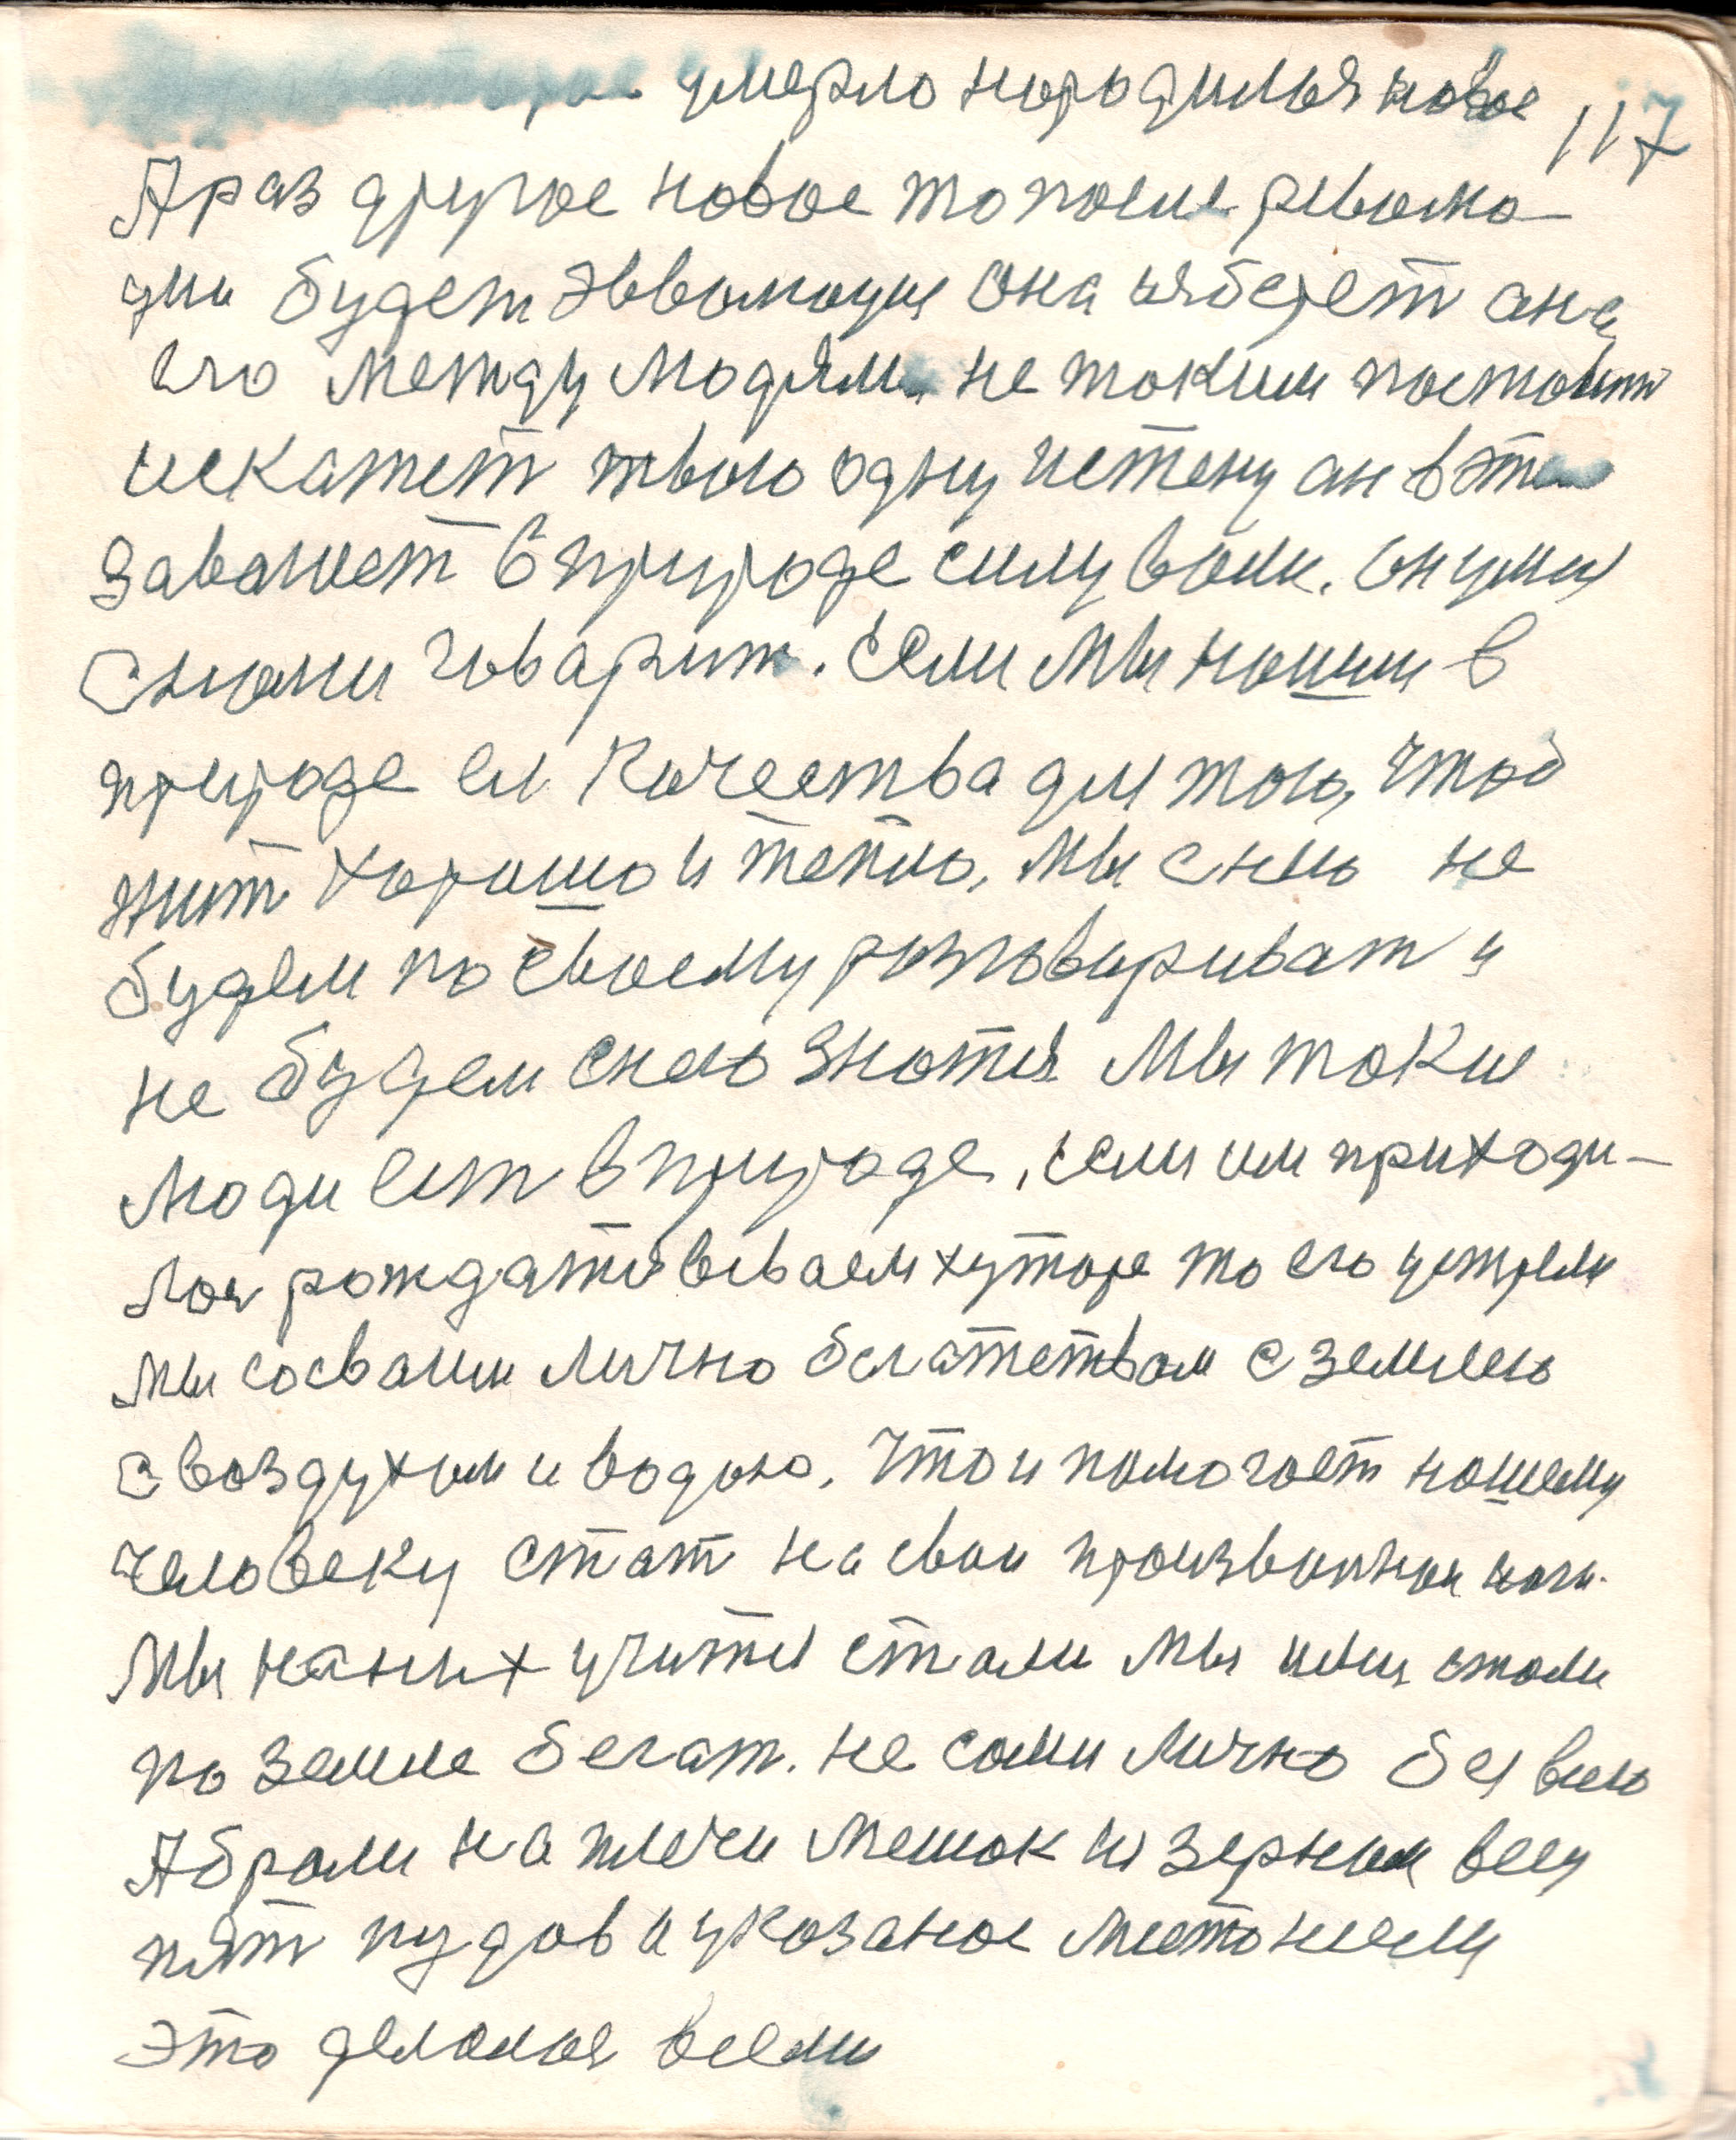 умерло народилься новое
117
А раз другое новое то после револю-
ции будет эвволюция она избереть ана
его между людями не таким поставит
искажет твою одну истену ан в эте
завоюет в природе силу воли. он уми
снами говарит. Если мы наши в
природе ей качества для того, чтоб
жит хорошо и тепло, мы снею не
будем по своему розговариват и
не будем снею знотся мы такие
люди ест в природе, если им приходи-
лоя рождатся всваем хуторе то его устрели
мы сосваим лично богатством с землею
с воздухом и водою. Что и помогает нашему
человеку стат на свои произволная ноги.
Мы на них учится стали мы ими стали
по земле бегат. не сами лично без всею
А брали на плечи мешок из зерном весу
пят пудов и указаное место несли
это делолоя всеми